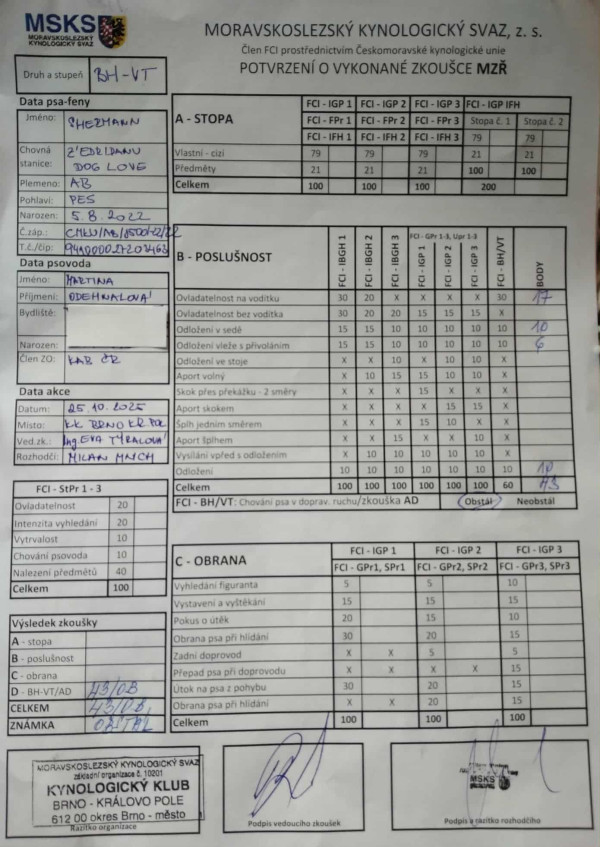 MSKS
MORAVSKOSLEZSKÝ
KYNOLOGICKÝ SVAZ
MORAVSKOSLEZSKÝ KYNOLOGICKÝ SVAZ, z. s.
Člen FCI prostřednictvím Českomoravské kynologické unie
POTVRZENÍ O VYKONANÉ ZKOUŠCE MZŘ
Druh a stupeň BH-VT
Data psa-feny
Jméno: SHERMANN
Chovná stanice: Z'EDRIDANU
DOG LOVE
Plemeno: AB
Pohlaví: PES
Narozen: 5.8.2022
Č.záp.:
T.č./čip:
Data psovoda
Jméno: MARTINA
Příjmení: ODEHNALOVÁ
Bydliště:
Narozen:
Člen ZO: KAB ČR
Data akce
Datum: 25.10.2025
Místo: KK BRNO KR. POL
Ved.zk.: Ing. EVA TÝRALOVÁ
Rozhodčí: MILAN MNCH
FCI - StPr 1 - 3
Ovladatelnost 20
Intenzita vyhledání 20
Vytrvalost 10
Chování psovoda 10
Nalezení předmětů 40
Celkem 100
Výsledek zkoušky
A - stopa
B - poslušnost
C - obrana
D - BH-VT/AD 43/OB
CELKEM 43/OB
ZNÁMKA OBSTÁL
A - STOPA
FCI - IGP 1 FCI - IGP 2 FCI - IGP 3 FCI - IGP IFH
FCI - FPr 1 FCI - FPr 2 FCI - FPr 3 Stopa č. 1 Stopa č. 2
FCI - IFH 1 FCI - IFH 2 FCI - IFH 3 79 79
Vlastní - cizí 79 79 79 21 21
Předměty 21 21 21 100 100
Celkem 100 100 100 200
B - POSLUŠNOST
FCI - GPr 1-3, Upr 1-3
FCI - IBGH 1 FCI - IBGH 2 FCI - IBGH 3 FCI - IGP 1 FCI - IGP 2 FCI - IGP 3 FCI - BH/VT BODY
Ovladatelnost na vodítku 30 20 X X X X 30 17
Ovladatelnost bez vodítka 30 20 20 15 15 15 X
Odložení v sedě 15 15 10 10 10 10 10 10
Odložení vleže s přivoláním 15 15 10 10 10 10 10 6
Odložení ve stoje X X 10 X 10 10 X
Aport volný X 10 15 15 10 10 X
Skok přes překážku - 2 směry X X X 15 X X X
Aport skokem X X X X 15 15 X
Šplh jedním směrem X X X 15 10 X X
Aport šplhem X X 15 X X 10 X
Vysílání vpřed s odložením X 10 10 10 10 10 X
Odložení 10 10 10 10 10 10 10 10
Celkem 100 100 100 100 100 100 60 43
FCI - BH/VT: Chování psa v doprav. ruchu/zkouška AD Obstál Neobstál
C - OBRANA
FCI - IGP 1 FCI - IGP 2 FCI - IGP 3
FCI - GPr1, SPr1 FCI - GPr2, SPr2 FCI - GPr3, SPr3
Vyhledání figuranta 5 5 10
Vystavení a vyštěkání 15 15 15
Pokus o útěk 20 15 10
Obrana psa při hlídání 30 20 15
Zadní doprovod X X 5 5
Přepad psa při doprovodu X X X X 15
Útok na psa z pohybu 30 20 15
Obrana psa při hlídání X X 20 15
Celkem 100 100 100
MORAVSKOSLEZSKÝ KYNOLOGICKÝ SVAZ
základní organizace č. 10201
KYNOLOGICKÝ KLUB
BRNO - KRÁLOVO POLE
612 00 okres Brno - město
Razítko organizace
Podpis vedoucího zkoušek
MSKS
Podpis a razítko rozhodčího